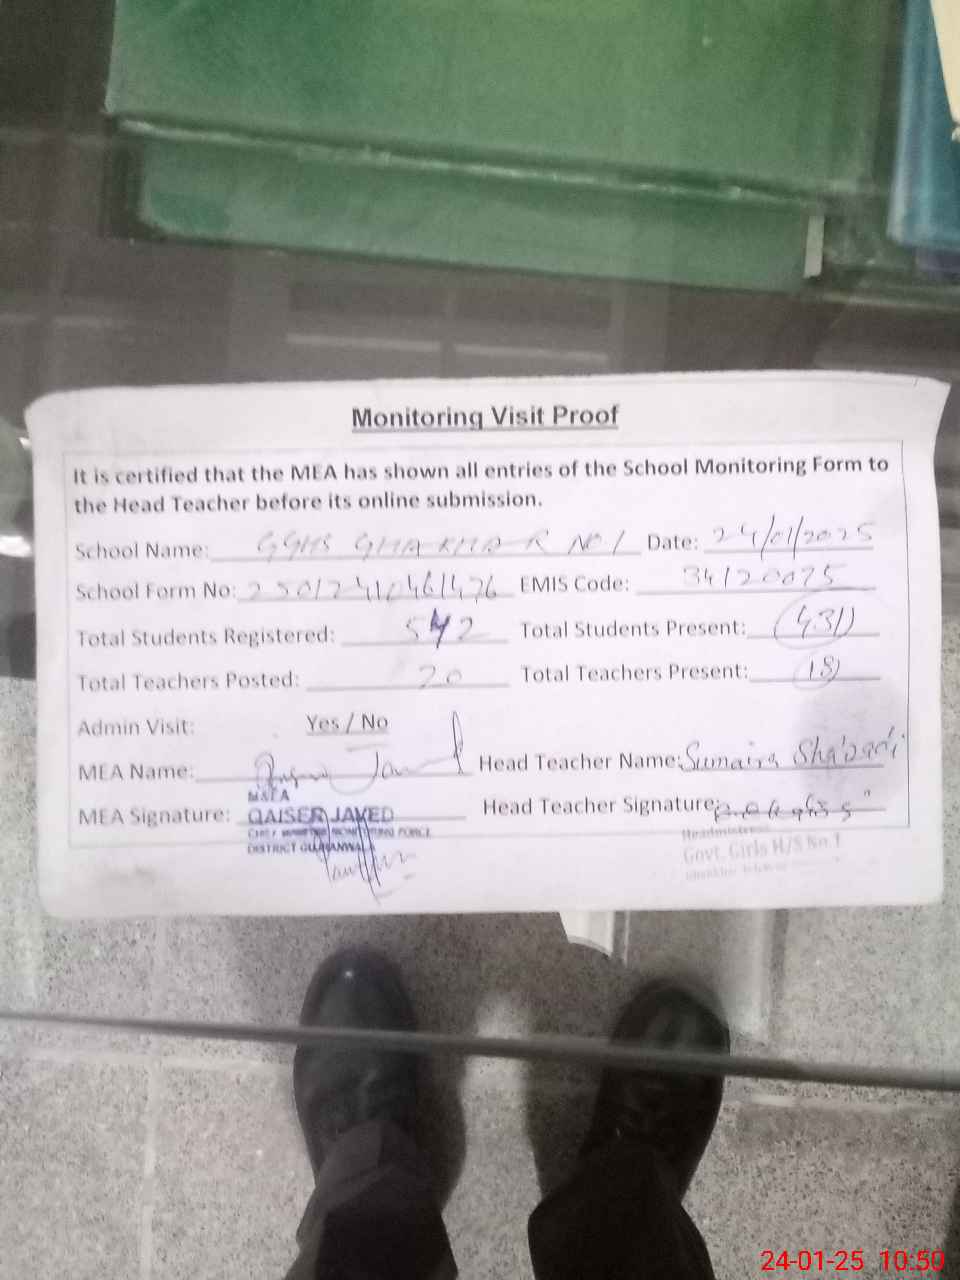 Monitoring Visit Proof
It is certified that the MEA has shown all entries of the School Monitoring Form to
the Head Teacher before its online submission.
School Name: GGHS GHAKHAR NO 1 Date: 24/01/2025
School Form No: EMIS Code: 34120075
Total Students Registered: 542 Total Students Present: 431
Total Teachers Posted: 20 Total Teachers Present: 18
Admin Visit: Yes / No
MEA Name: Head Teacher Name: Sumaira
MEA Signature: Head Teacher Signature:
M&EA
QAISER JAVED
CHIEF MINISTER MONITORING FORCE
DISTRICT GUJRANWALA
Headmistress
Govt. Girls H/S No.1
24-01-25 10:50